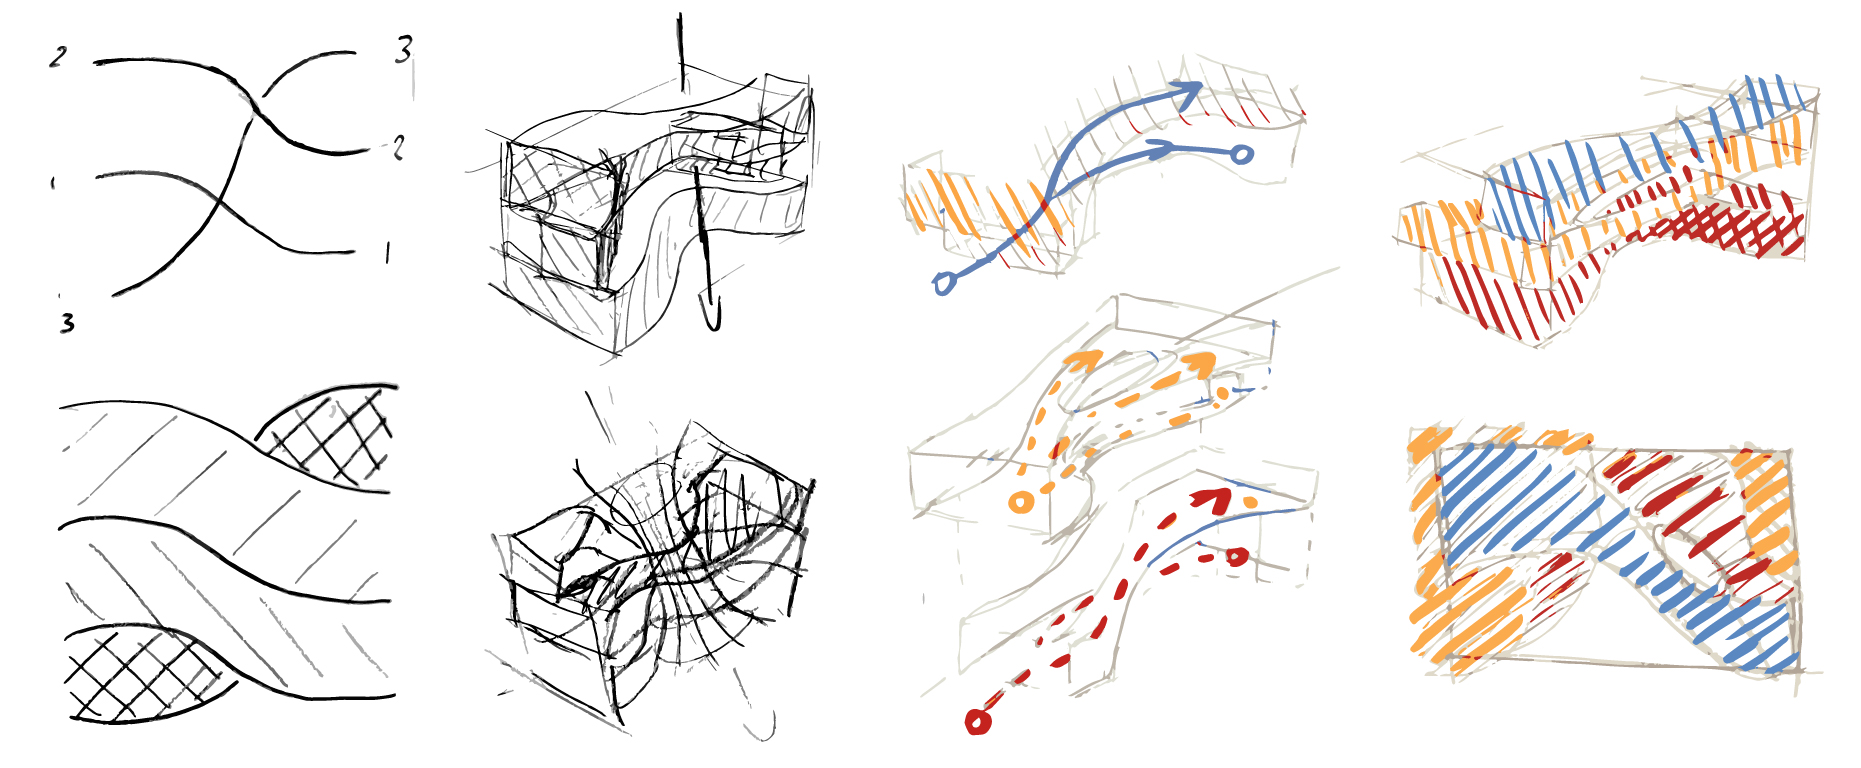 2 3
2
1
1
3